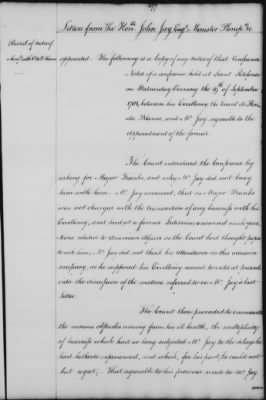 Letters from The Honble. John Jay Esqr. Minister Plenipo. &c.
Recital of notes of
appointed. The following is a Copy of my notes of that Conference
Notes of a conference held at Saint
on Wednesday Evening the
between his Excellency the Count de
Blanca, and Mr. Jay, agreeable to the
appointment of the former
The Count introduced the Conference by
asking for Major Franks, and why Mr. Jay did not bring
him with him. Mr. Jay answered, that as Major Franks
was not charged with the transaction of any business with his
Excellency, and had at a former Interview answered such ques-
tions relative to American Affairs as the Count had thought proper
to ask him, Mr. Jay did not think his attendance on this occasion
necessary, as he supposed his Excellency meant to enter at present
into the discussion of the matters referred to in Mr. Jay's last
letter.
The Count then proceeded to enumerate
the various obstacles arising from his ill health, the multiplicity
of business which had so long subjected Mr. Jay to the delays he
had hitherto experienced, and which, for his part, he could not
but regret; That agreeable to his promise made to Mr. Jay